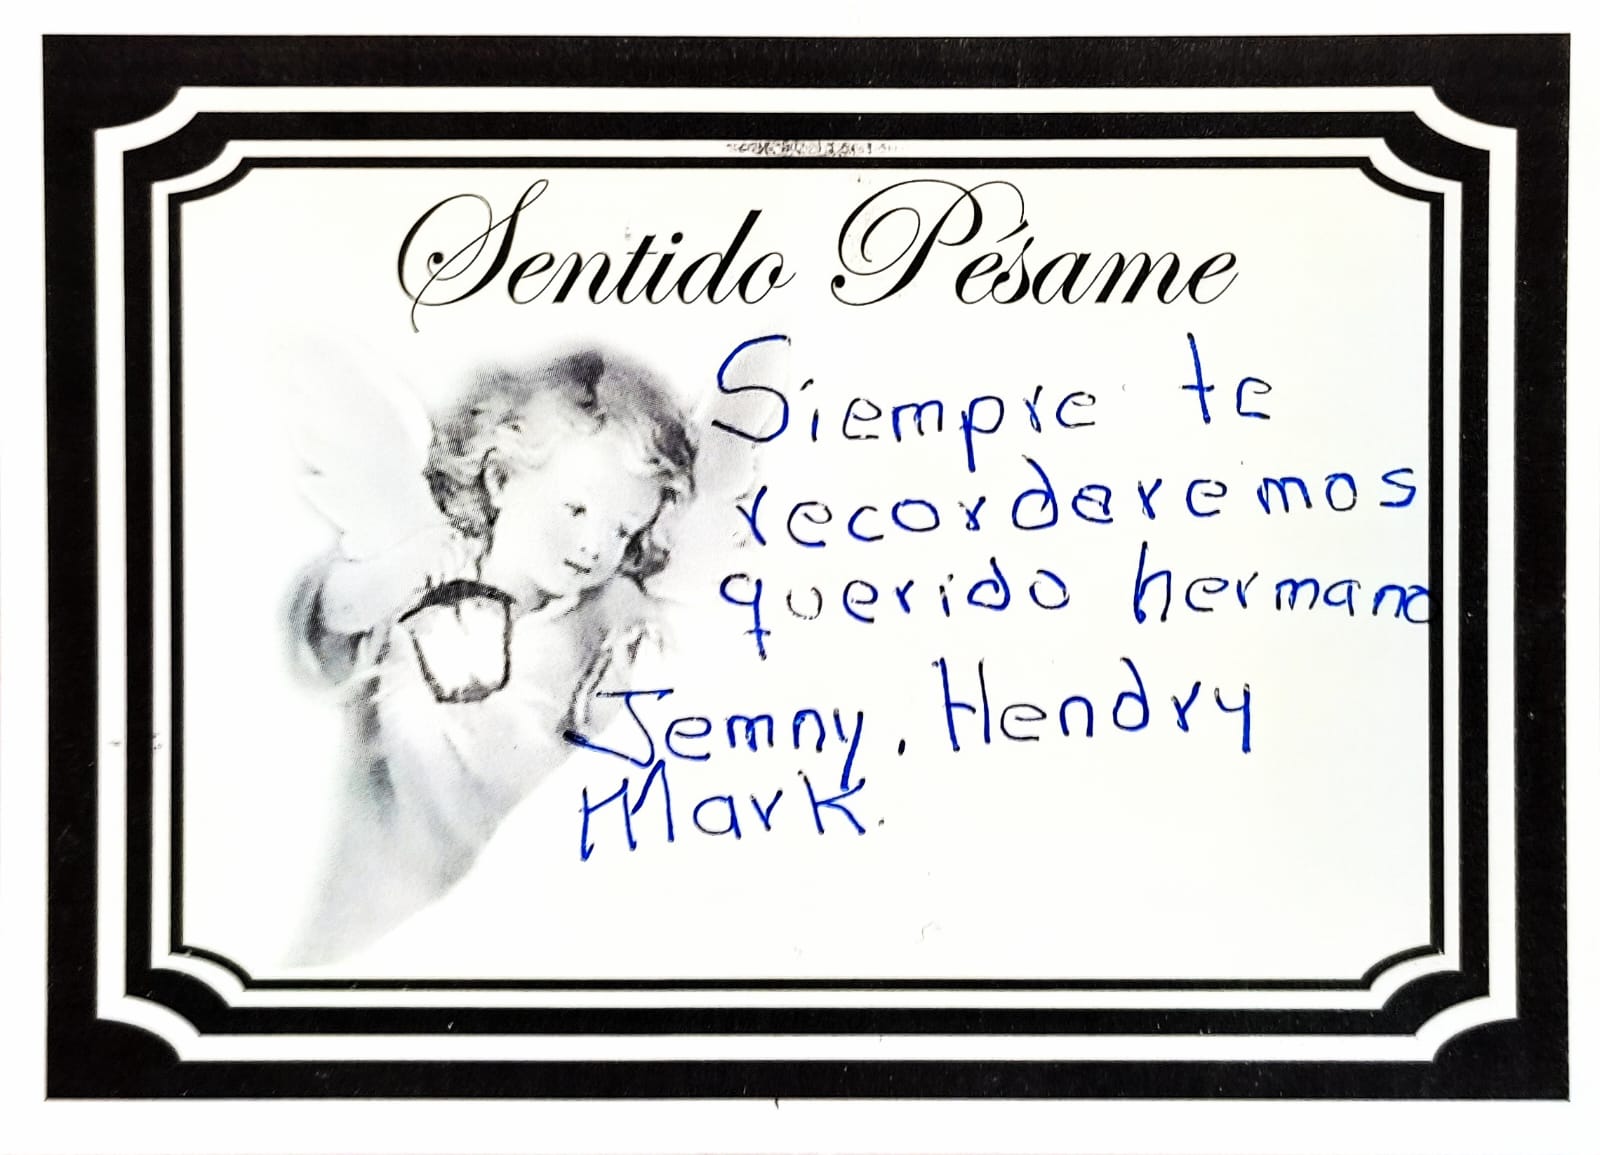 Sentido Pésame
Siempre te
recordaremos
querido hermano
Jemny. Hendry
Mark.